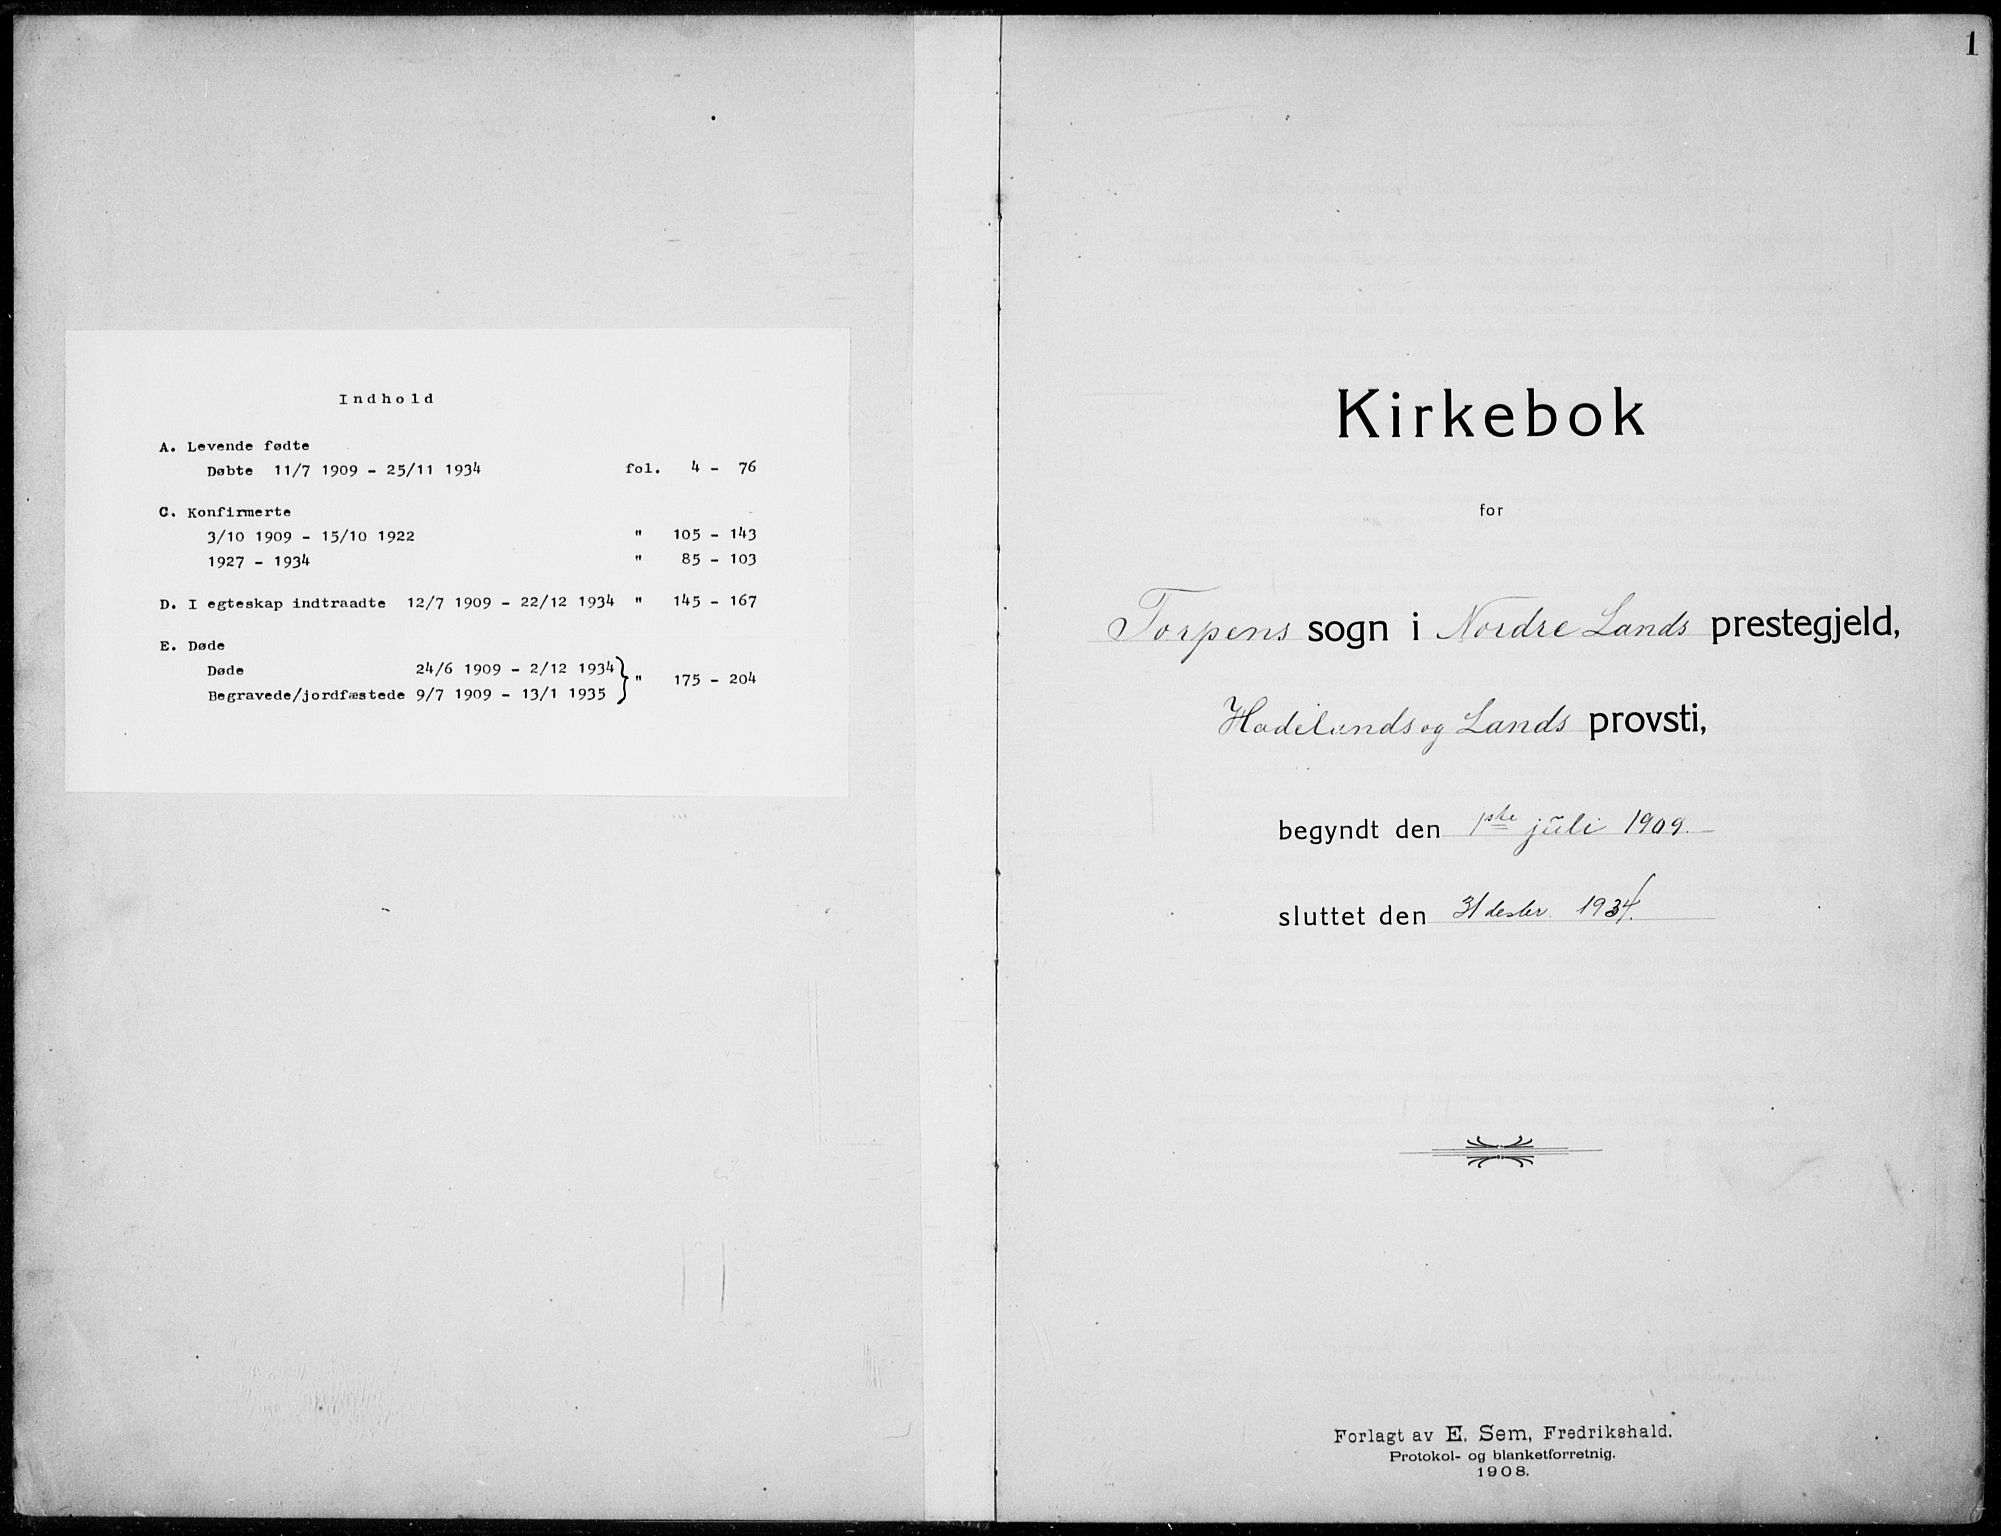 Indhold
A. Levende fødte
Døbte 11/7 1909 - 25/11 1934 fol. 4 - 76
C. Konfirmerte
3/10 1909 - 15/10 1922 " 105 - 143
1927 - 1934 " 85 - 103
D. I egteskap indtraadte 12/7 1909 - 22/12 1934 " 145 - 167
E. Døde
Døde 24/6 1909 - 2/12 1934
Begravede/jordfæstede 9/7 1909 - 13/1 1935 } " 175 - 204
1
Kirkebok
for
Torpens sogn i Nordre Lands prestegjeld,
Hadelands og Lands provsti,
begyndt den 1ste juli 1909.
sluttet den 31 desbr. 1934.
Forlagt av E. Sem, Fredrikshald.
Protokol- og blanketforretnig.
1908.